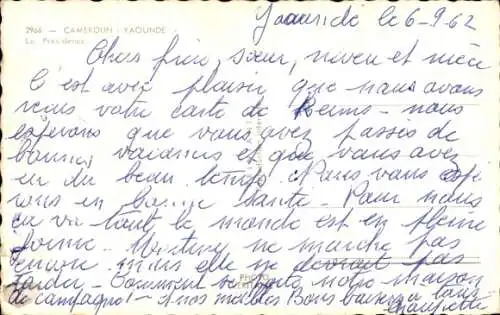 2966 - CAMEROUN - YAOUNDE
La Présidence
Yaoundé le 6-9-62
Chers frère, sœur, neveu et nièce
C'est avec plaisir que nous avons
reçus votre carte de Reims - nous
espérons que vous avez passés de
bonnes vacances et que vous avez
eu du beau temps. Nous vous espé
rons en bonne santé - Pour nous
ça va tout le monde est en pleine
forme. ne marche pas
encore mais elle ne devrait pas
tarder - Comment se porte notre maison
de campagne! - Bons baisers à tous